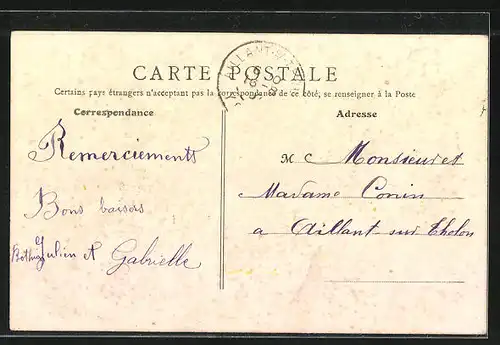 AILLANT-S-T
CARTE POSTALE
Certains pays étrangers n'acceptant pas la correspondance de ce côté, se renseigner à la Poste
Correspondance
Adresse
Remerciements
Bons baisers
Julien et Gabrielle
M Monsieur et
Madame
a Aillant sur Tholon